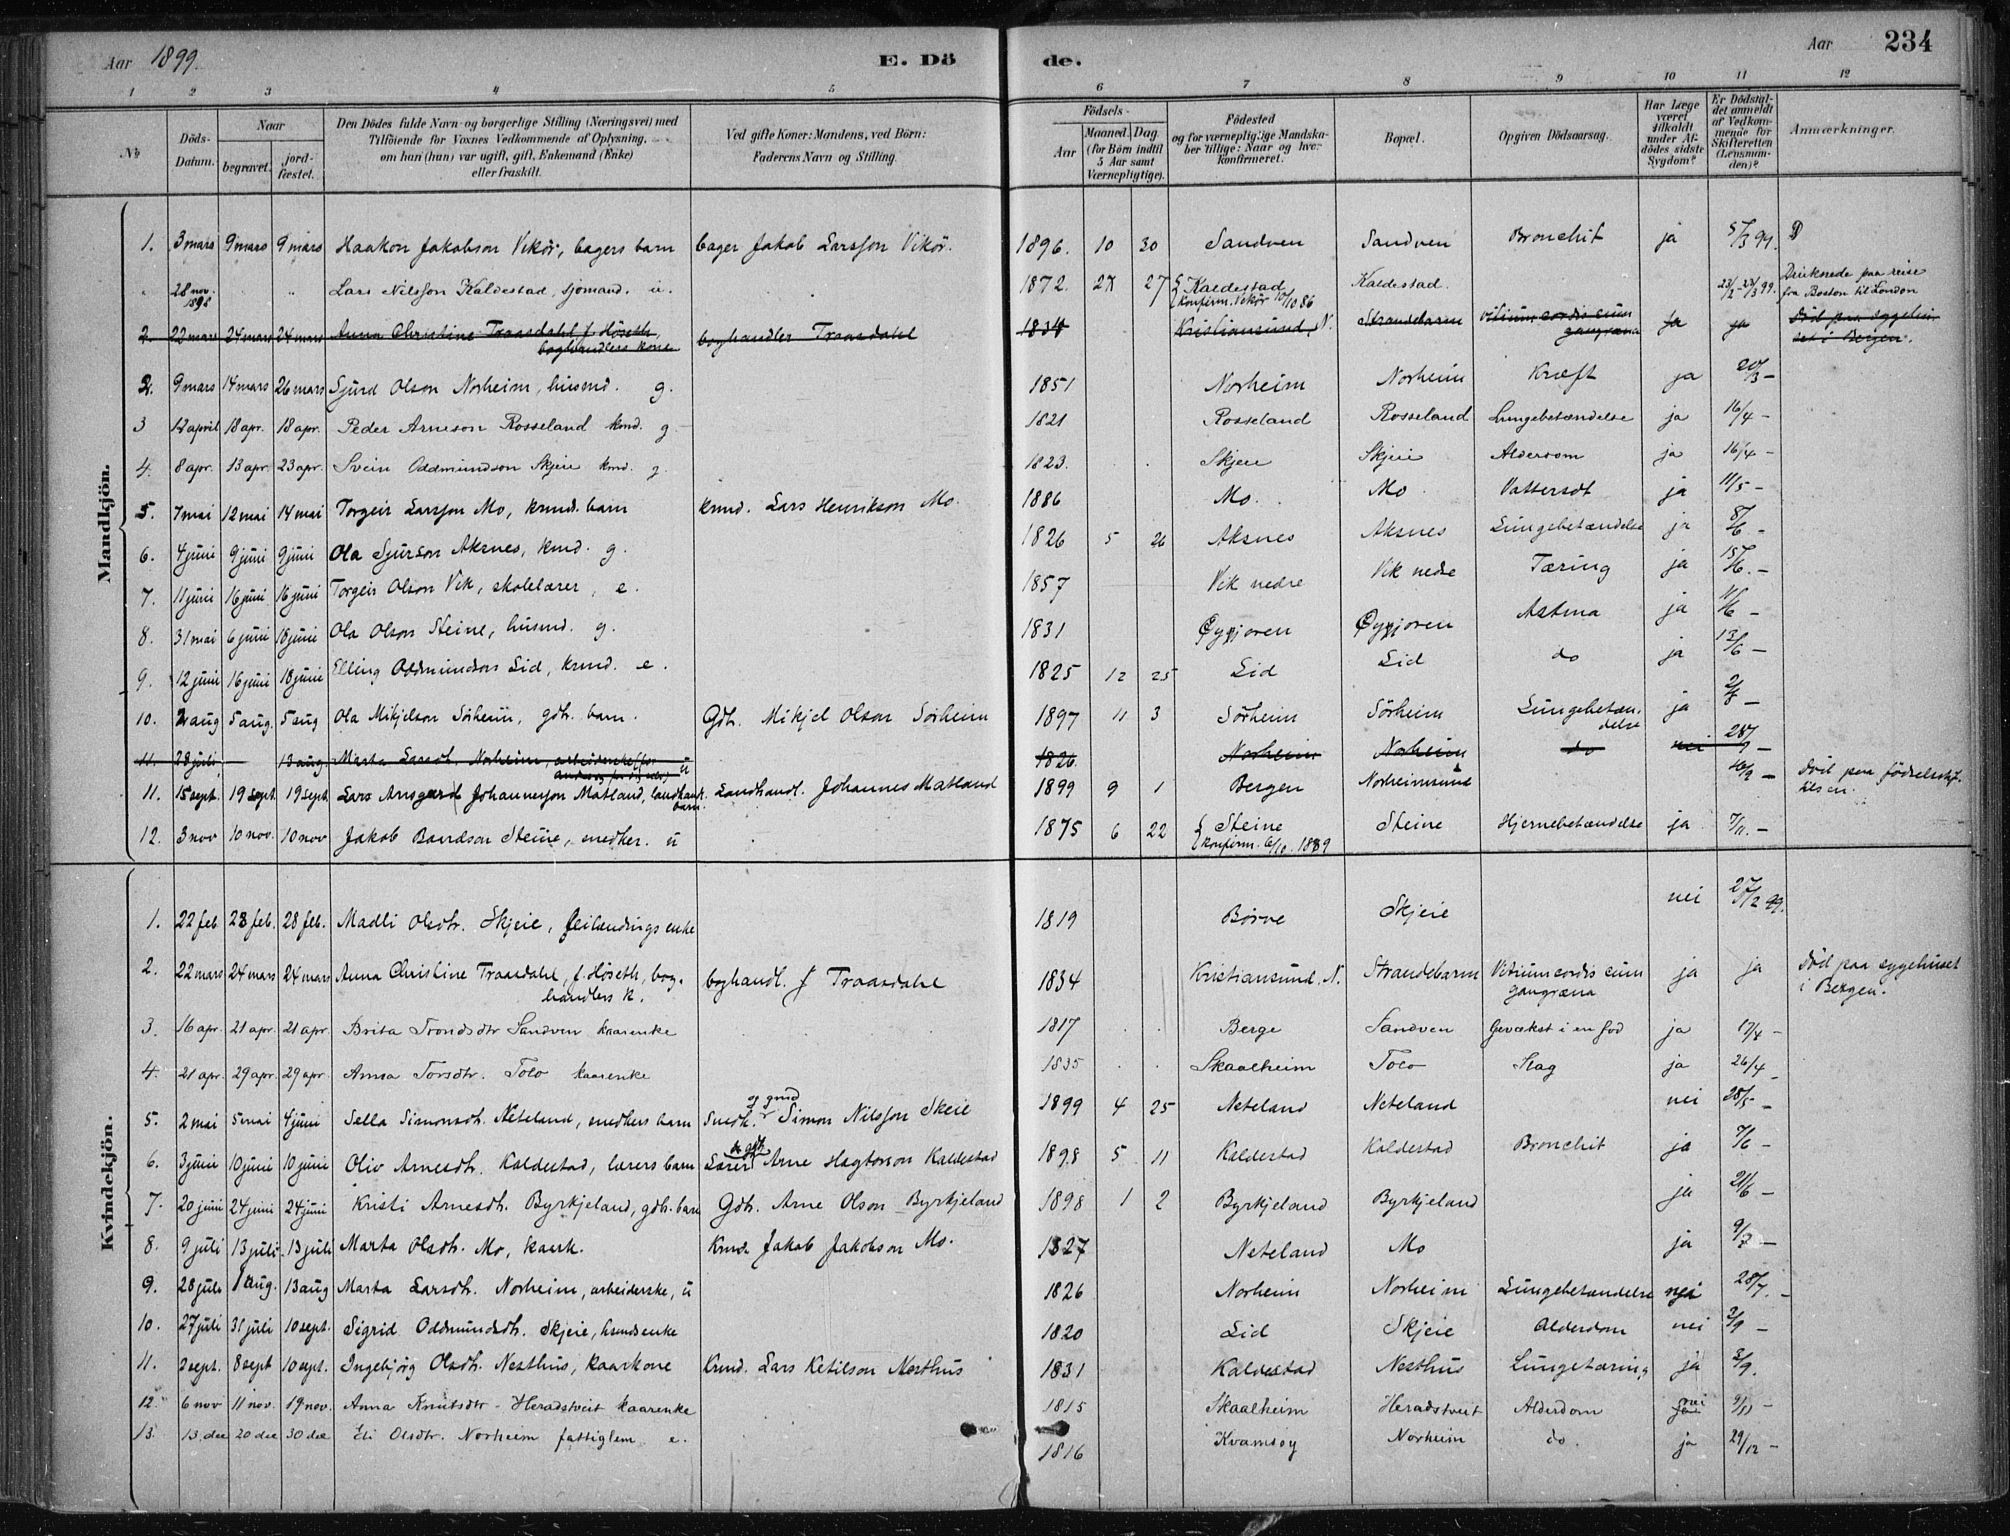 Aar 1899.
E. Dö
de.
Aar
234
1 2 3 4 5 6 7 8 9 10 11 12
No
Döds-Datum.
Naar
begravet.
jord-fæstet.
Den Dödes fulde Navn og borgerlige Stilling (Næringsvei) med
Tilföiende for Voxnes Vedkommende af Oplysning,
om han (hun) var ugift, gift, Enkemand (Enke)
eller fraskilt.
Ved gifte Koner: Mandens, ved Börn:
Faderens Navn og Stilling.
Födsels-
Aar
Maaned. Dag.
(for Börn indtil
5 Aar samt
Værnepligtige).
Födested
og for værnepligtige Mandska-
ber tillige: Naar og hvor
konfirmeret.
Bopæl.
Opgiven Dödsaarsag.
Har Læge
været
tilkaldt
under Af-
dödes sidste
Sygdom?
Er Dödsfal-
det anmeldt
af Vedkom-
mende for
Skifteretten
(Lensman-
den)?
Anmærkninger.
Mandkjön.
1. 3 mars 9 mars 9 mars Haakon Jakobson Vikør, bagers barn bager Jakob Larsson Vikør. 1896. 10 30 Sandven Sandven Bronchit ja 5/3 99.
28 nov. 1898 Lars Nilsson Kaldestad, sjømand. u. 1872. 27 Kaldestad Kaldestad. 23/2-23/3 99. Druknede paa reise
konfirm. Vikør 10/10 86 fra Boston til London
2. 22 mars 24 mars 24 mars Anna Christine Traasdahl f. Høseth boghandler Traasdahl 1834 Kristiansund, N. Strandebarm vitium cordis cum ja ja død paa sygehu-
boghandlers kone gangræna set i Bergen.
2. 9 mars 14 mars 26 mars Sjurd Olson Norheim, husmd. g. 1851 Norheim Norheim Kræft ja 20/3 –
3 12 april 18 apr. 18 apr. Peder Arneson Rosseland kmd. g 1821 Rosseland Rosseland Lungebetændelse ja 16/4 –
4. 8 apr. 13 apr. 23 apr. Svein Oddmundson Skjeie kmd. g. 1823. Skjeie Skjeie Alderdom ja 16/4 –
5. 7 mai 12 mai 14 mai Torgeir Larsson Mo, kmnd. barn kmnd. Lars Henrikson Mo. 1886 Mo. Mo Vattersot ja 11/5 –
6. 4 juni 9 juni 9 juni Ola Sjurson Aksnes, kmd. g. 1826 5 26 Aksnes Aksnes Lungebetændelse ja 8/6 –
7. 11 juni 16 juni 16 juni Torgeir Olson Vik, skolelærer, e. 1857 Vik nedre Vik nedre Tæring ja 15/6. –
8. 31 mai 6 juni 18 juni Ola Olson Steine, husmd. g. 1831 Øygjoren Øygjoren Astma ja 11/6 –
9. 12 juni 16 juni 18 juni Elling Oddmundson Lid, kmnd. e. 1825 12 25 Lid Lid do ja 13/6 –
10. 2 aug 5 aug. 5 aug Ola Mikjelson Sørheim, gdb. barn. Gdb. Mikjel Olson Sørheim 1897 11 3 Sørheim Sørheim Lungebetæn-
delse ja 2/8 –
11. 28 juli 13 aug. Marta Larsdt. Norheim, arbeiderske u 1826 Norheim Norheim do nei 28/7 –
11. 15 sept. 19 sept. 19 sept. Lars Ansgard Johannesson Matland, landhandl. barn. Landhandl. Johannes Matland 1899 9 1 Bergen Norheimsund 16/9 – død paa fødselsstif-
telsen.
12. 3 nov 10 nov. 10 nov Jakob Baardson Steine, snedker. u 1875 6 22 Steine Steine Hjernebetændelse ja 7/11. –
konfirm. 6/10. 1889
Kvindekjön.
1. 22 feb 28 feb. 28 feb. Madli Olsdtr. Skjeie, feilændings enke 1819 Børve Skjeie nei 27/2 99.
2. 22 mars 24 mars 24 mars Anna Christine Traasdahl, f. Høseth, bog- boghandl. J Traasdahl 1834 Kristiansund, N. Strandebarm Vitium cordis cum ja ja død paa sygehuset
handlers k. gangræna i Bergen.
3. 16 apr. 21 apr. 21 apr. Brita Trondsdtr Sandven kaarenke 1817 Berge Sandven Gevækst i en fod ja 17/4 –
4. 21 apr. 29 apr. 29 apr. Anna Torsdtr. Tolo kaarenke 1835 Skaalheim Tolo Slag ja 26/4 –
5. 2 mai 5 mai 4 juni Sella Simonsdt. Neteland, snedkers barn Snedk. og gmd Simon Nilsson Skeie 1899 4 25 Neteland Neteland nei 28/5 –
6. 3 juni 10 juni 10 juni Oliv Arnesdt. Kaldestad, lærers barn Lærer Arne Hagtorson Kaldestad 1898 5 11 Kaldestad Kaldestad Bronchit ja 7/6 –
7. 20 juni 24 juni 24 juni Kristi Arnesdt. Byrkjeland, gdb. barn Gdb. Arne Olson Byrkjeland 1898 1 2 Byrkjeland Byrkjeland ja 21/6 –
8. 9 juli 13 juli 13 juli Marta Olsdt. Mo, kaark. Kmd. Jakob Jakobson Mo. 1827 Neteland Mo ja 9/7 –
9. 28 juli 1 aug. 13 aug Marta Larsdt. Norheim, arbeiderske, u 1826 Norheim Norheim Lungebetændelse nei 28/7. –
10. 27 juli 31 juli 10 sept. Sigrid Oddmundsdt. Skjeie, kmdsenke 1820 Lid Skjeie Alderdom nei 2/9 –
11. 2 sept. 8 sept 10 sept. Ingebjørg Olsdt. Nesthus, kaarkone Kmd. Lars Ketilson Nesthus 1831 Kaldestad Nesthus Lungetæring ja 3/9.
12. 6 nov 11 nov. 19 nov. Anna Knutsdtr Heradstveit kaarenke 1815 Skaalheim Heradstveit Alderdom nei 9/11 –
13. 13. dec 20 dec 30 dec Eli Olsdtr. Norheim fattiglem e. 1816 Kvamsøy Norheim do. ja 29/12 –